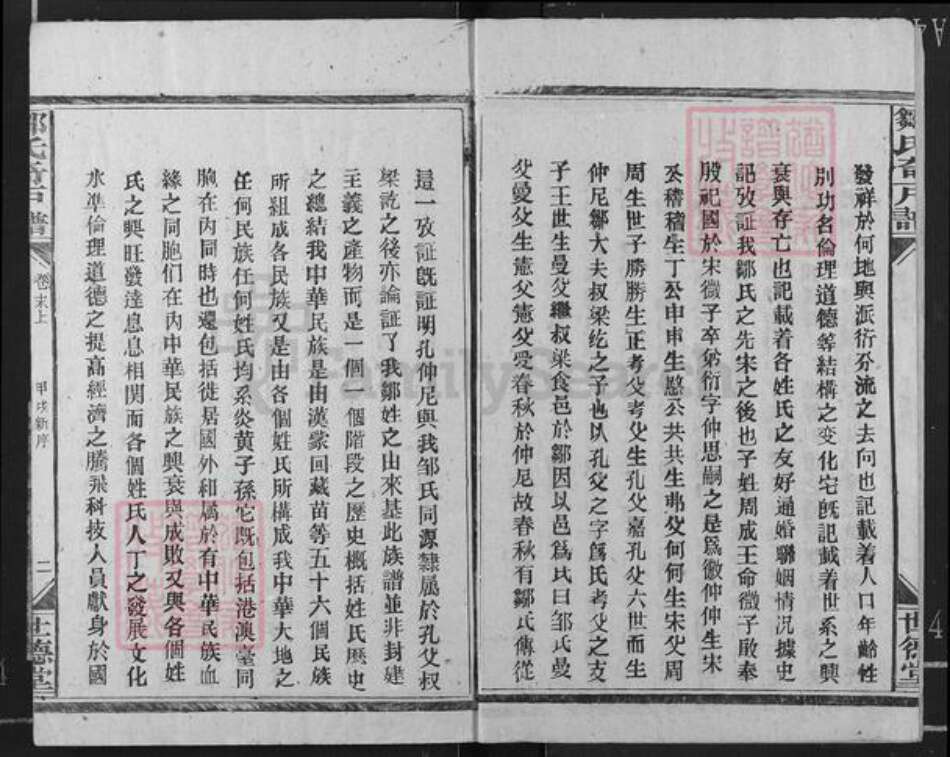 鄒氏
譜
世德堂
發祥於何地與派衍分流之去向也記載着人口年齡性
別功名倫理道德等結構之变化它旣記載着世系之興
衰與存亡也記載着各姓氏之友好通婚聯姻情况據史
記攷証我鄒氏之先宋之後也子姓周成王命微子啟奉
殷祀國於宋微子卒弟衍字仲思嗣之是爲微仲仲生宋
公稽稽生丁公申申生愍公共共生弗父何何生宋父周
周生世子勝勝生正考父考父生孔父嘉孔父六世而生
仲尼鄒大夫叔梁纥之子也以孔父之字爲氏考父之支
子王世生曼父繼叔梁食邑於鄒因以邑爲氏曰邹氏曼
父愛父生憲父憲父受春秋於仲尼故春秋有鄒氏傳從
這一攷証旣証明孔仲尼與我邹氏同源隸属於孔父叔
梁訖之後亦論証了我鄒姓之由來基此族譜並非封建
主義之產物而是一個一個階段之歷史概括姓氏歷史
之總结我中華民族是由漢蒙回藏苗等五十六個民族
所組成各民族又是由各個姓氏所構成我中華大地之
任何民族任何姓氏均系炎黄子孫它既包括港澳臺同
胞在內同時也還包括徙居國外和属於有中華民族血
緣之同胞們在內中華民族之興衰與成敗又與各個姓
氏之興旺發達息息相関而各個姓氏人丁之發展文化
水準倫理道德之提高經濟之騰飛科技人員獻身於國
氏
譜
卷末上
甲戌新序
二
世德堂
FamilySearch